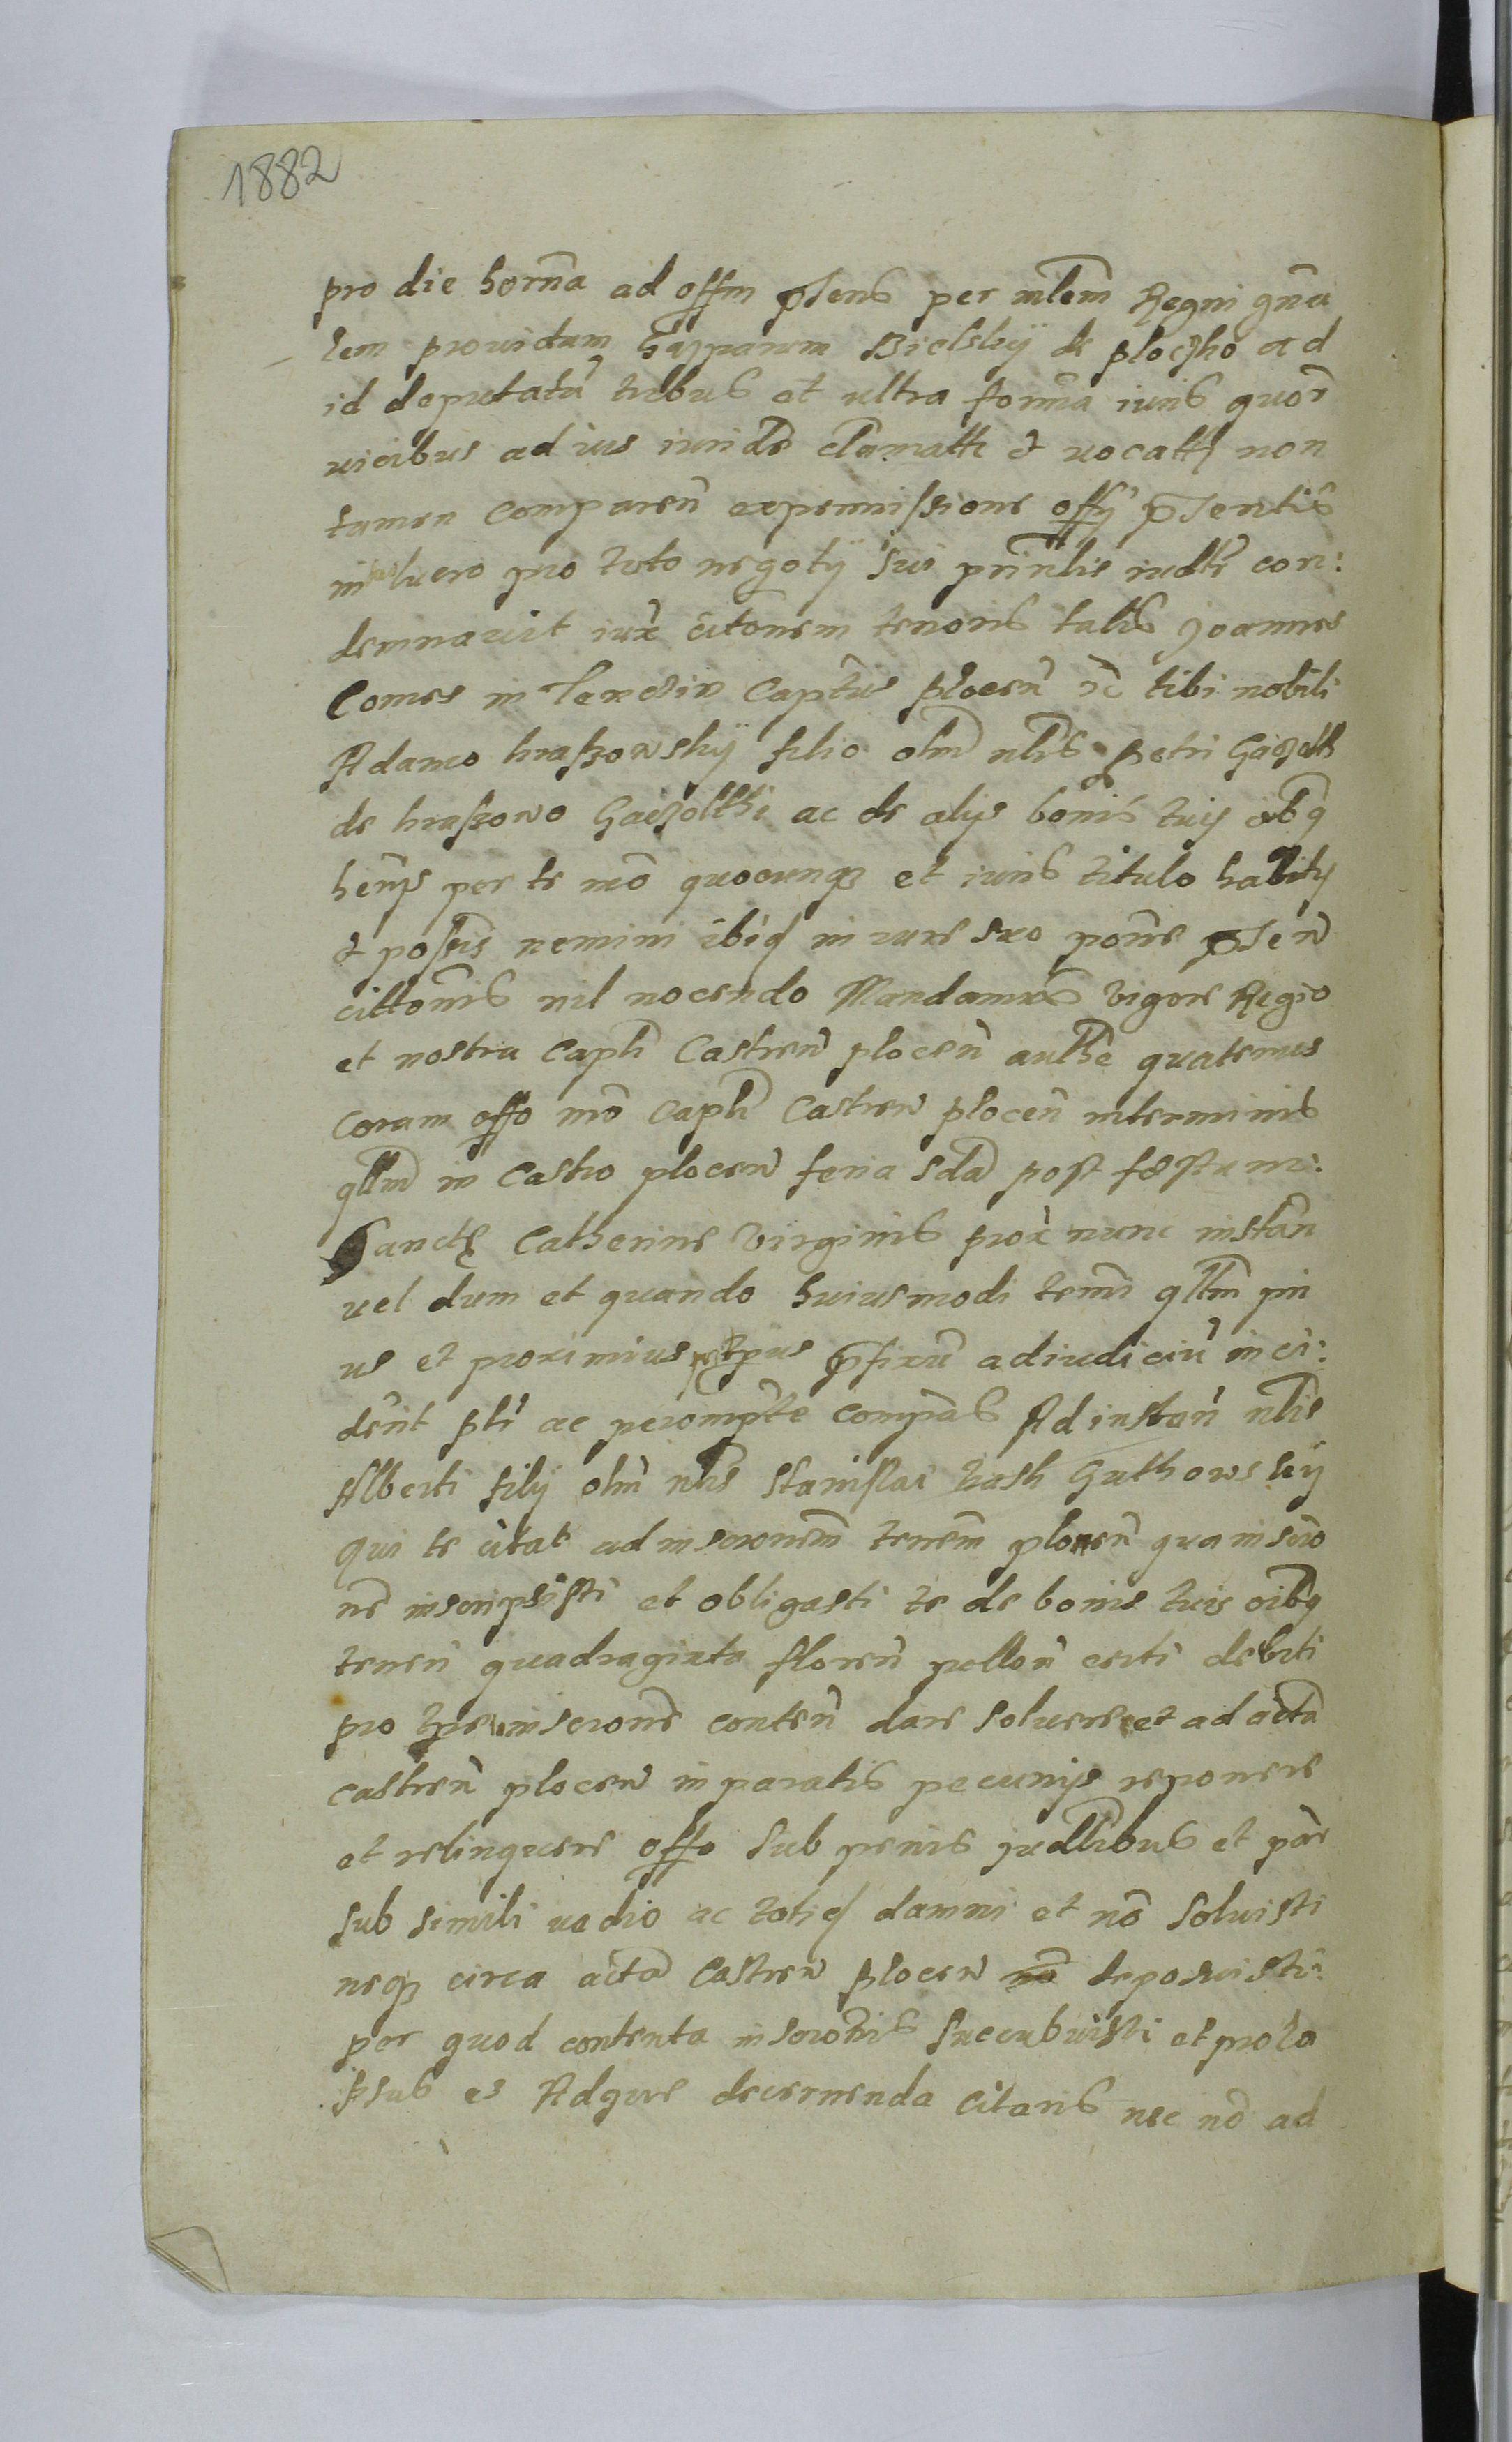 1882
pro die hŏrna ad offm pñtens per mlem Regni gna
lem prouidum Gasparum Bielskÿ de ploczko ad
id deputatū tribus et ultra forma iuris quor
uicibus ad ius iuridce clamatti et uocatt non
tamen comparen̄ expermissione offÿ pñtentis
in lucro pro toto negotÿ sui prinlis iudltr con:
demnauit iux citonem tenoris talis Joannes
Comes in Tenczin Captus plocen̄ ec tibi nobili
Adamo kraszowskÿ filio olim nlis Petri Goczolt
de kraszowo Goczoltki ac de alijs bonis tuis oibq
henijs per te mō quocunq et iuris titulo habitis
et possēis nemini ibiq in iure suo pōne pñten̄
cittōnis nil nocendo Mandamus vigore Regio
et nostra Capli Castren̄ plocen̄ authe quatenus
coram offo nrō Capli Castren̄ plocen̄ in terminis
qllm in Castro plocen̄ feria sda post festum:
Sanctę Catherine Virginis prox nunc instan
uel dum et quando huiusmodi termi qllm pri
us et proximius pñfixū ad iudiciū inci:
dent plr ac peromptē compās Ad instan̄ nlis
Alberti filÿ olim nlis Stanislai Gutkowskÿ
qui te citat ad inscronem terrem plocen̄ qua inscro
ne inscripsisti et obligasti te de bonis tuis oibq
tenen̄ quadraginta floren̄ pollon̄ certi debiti
pro tpe inscrone conten̄ dare soluere et ad acta
castren̄ plocen̄ in paratis pecunijs reponere
et relinquere offo sub penis judlibus et pōre
sub simili uadio ac totiq damni et nō soluisti
neq circa acta Castren̄ plocen̄ deposuisti:
per quod contenta inscronis succubuisti et prola
psus es Ad que decernenda citaris nec nō ad